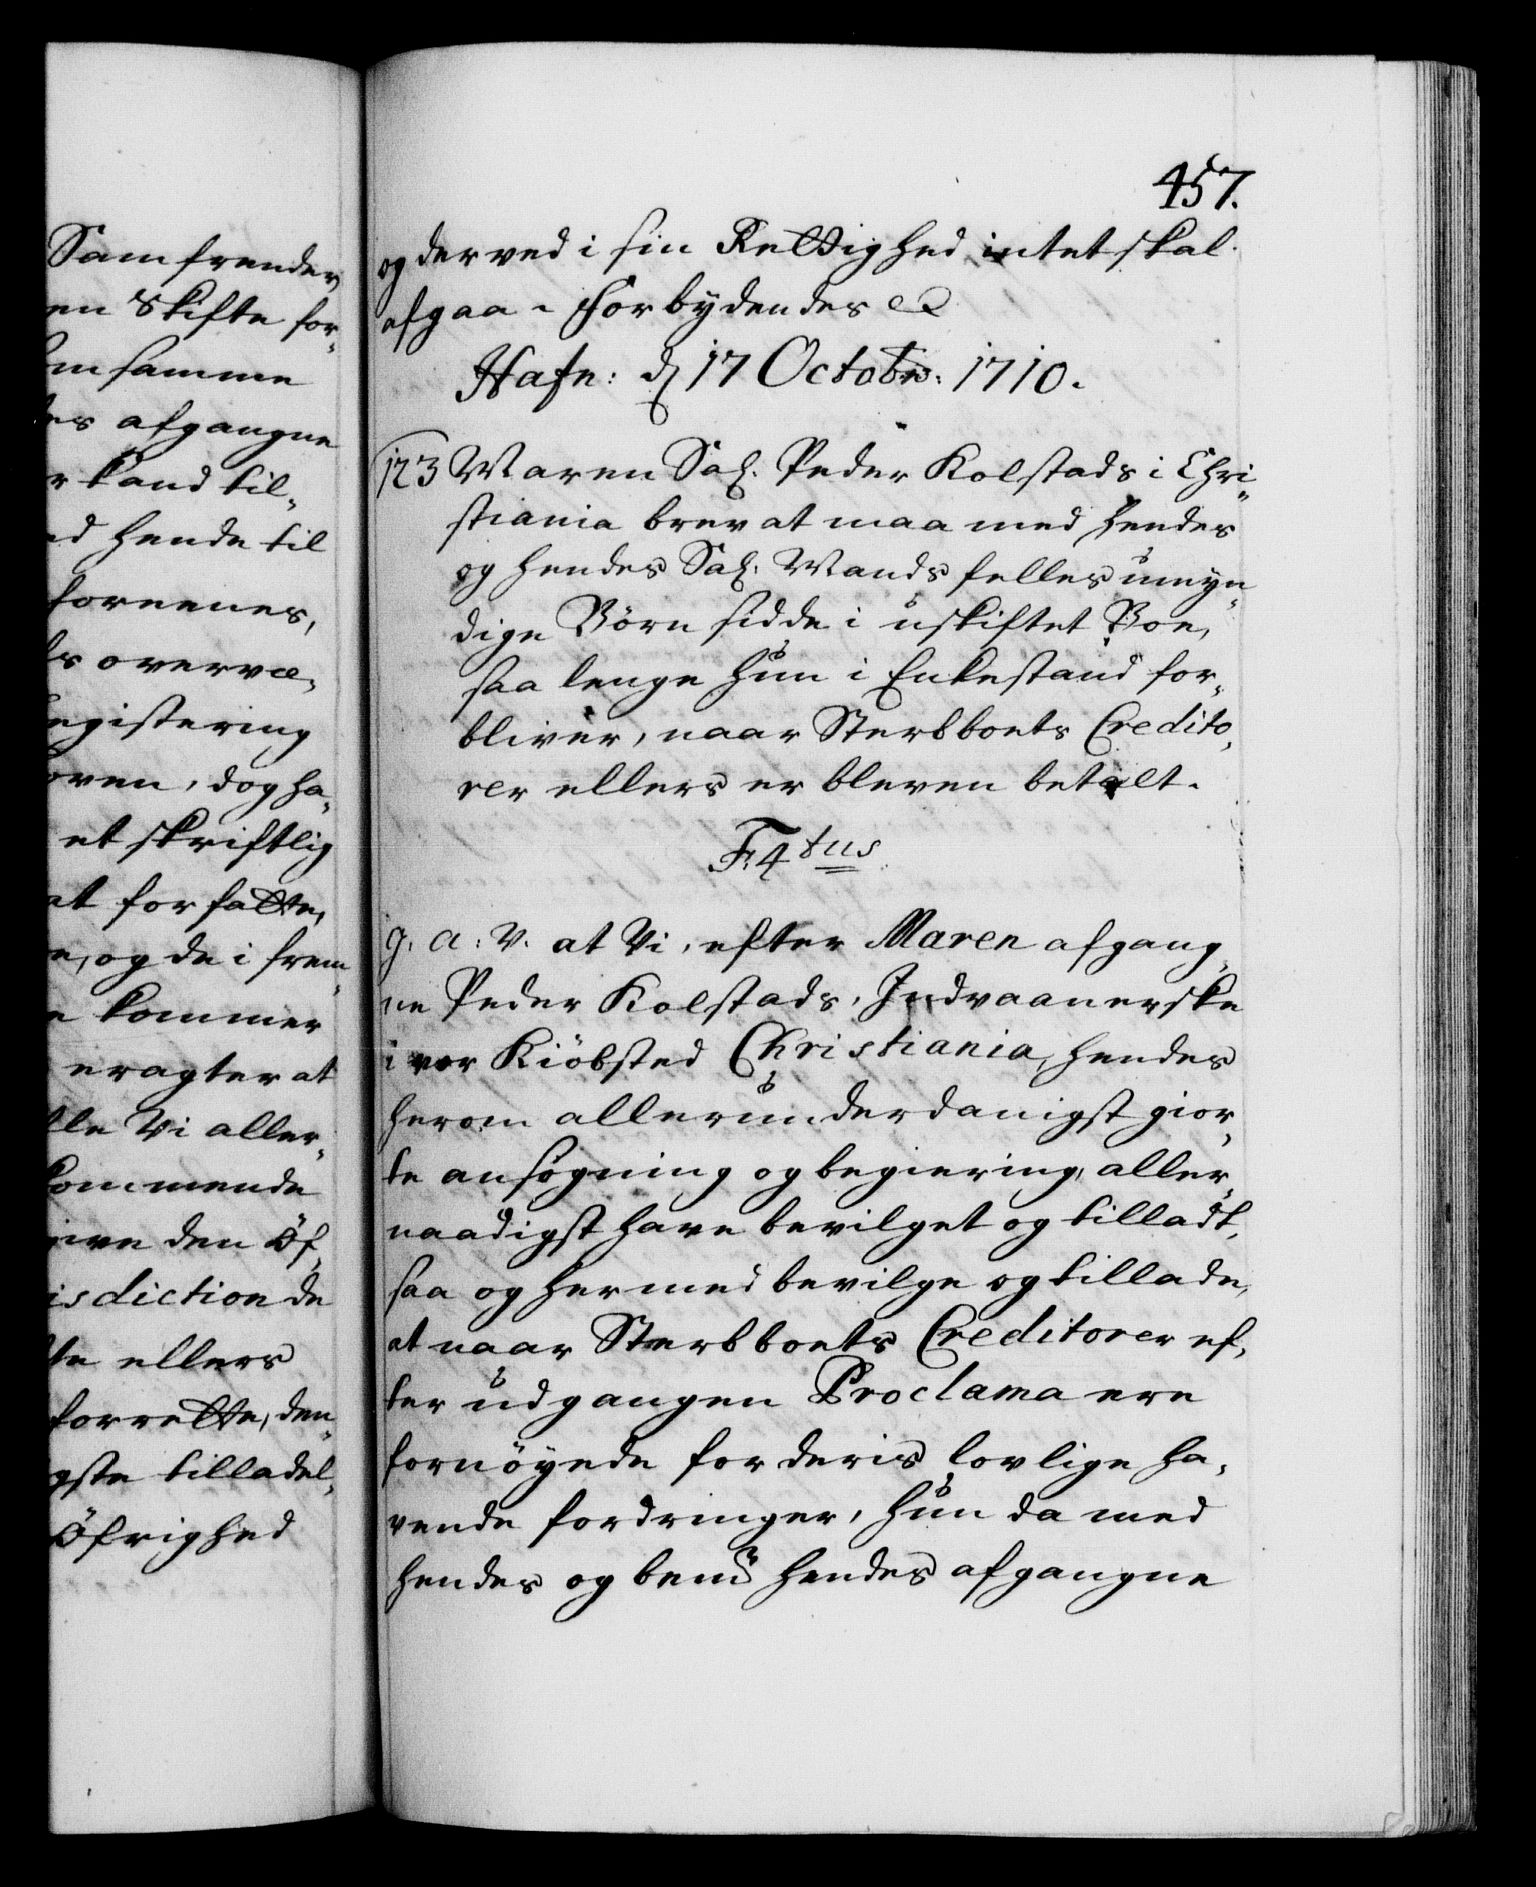 Samfrender
en Skifte for„
om samme
des afgangne
r kand til„
ed hende til
forneenes,
ds overvæ„
egistering
oren, dog ha„
et skriftlig
at forfatte,
e, og de i frem„
e kommer
eragter at
lle Vi aller„
kommende
give den Öf„
isdiction de
te ellers
forrette, den„
gste tilladel„
Öfrighed
457.
og derved i sin Rettighed intet skal
afgaa. Forbydendes &
Hafn: d 17 Octobr: 1710.
123 Maren Sal. Peder Kolstads i Chri„
stiania brev at maa med hendes
og hendes Sal: Mands felles umyn„
dige Börn sidde i uskiftet Boe,
saa lenge hun i Enkestand for„
bliver, naar Sterbboets Credito„
rer ellers er bleven betalt.
F. 4tus
G. A: V. at Vi, efter Maren afgang„
ne Peder Kolstads, Indvaanerske
i vor Kiöbsted Christiania, hendes
herom allerunderdanigst gior„
te ansögning og begiering, aller„
naadigst have bevilget og tilladt,
saa og hermed bevilge og tillade,
at naar Sterbboets Creditorer ef„
ter udgangen Proclama ere
fornöyede for deris lovlige ha„
vende fordringer, hun da med
hendes og bemte hendes afgangne